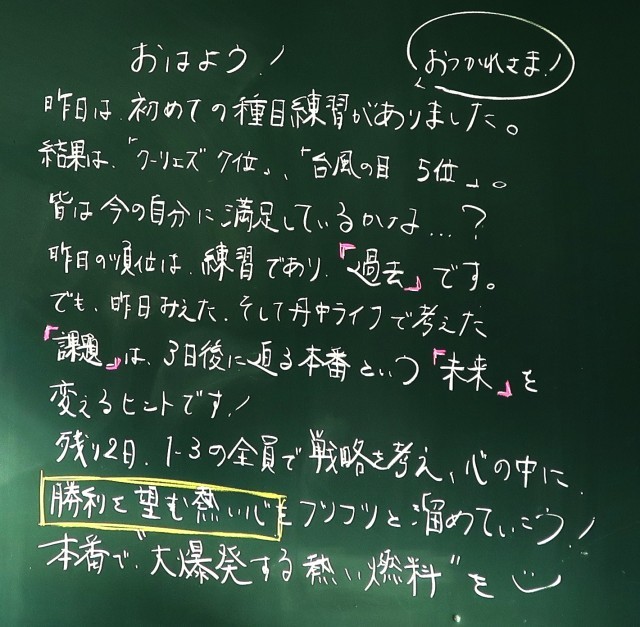 おはよう!
おつかれさま!
昨日は、初めての種目練習がありました。
結果は、「クーリェズ 7位」、「台風の目 5位」。
皆は今の自分に満足しているかな…?
昨日の順位は、練習であり、「過去」です。
でも、昨日みえた、そして丹中ライフで考えた
「課題」は、3日後に迫る本番という「未来」を
変えるヒントです!
残り2日、1-3の全員で戦略を考え、心の中に、
勝利を望む熱い心をフツフツと溜めていこう!
本番で、"大爆発する熱い燃料"を